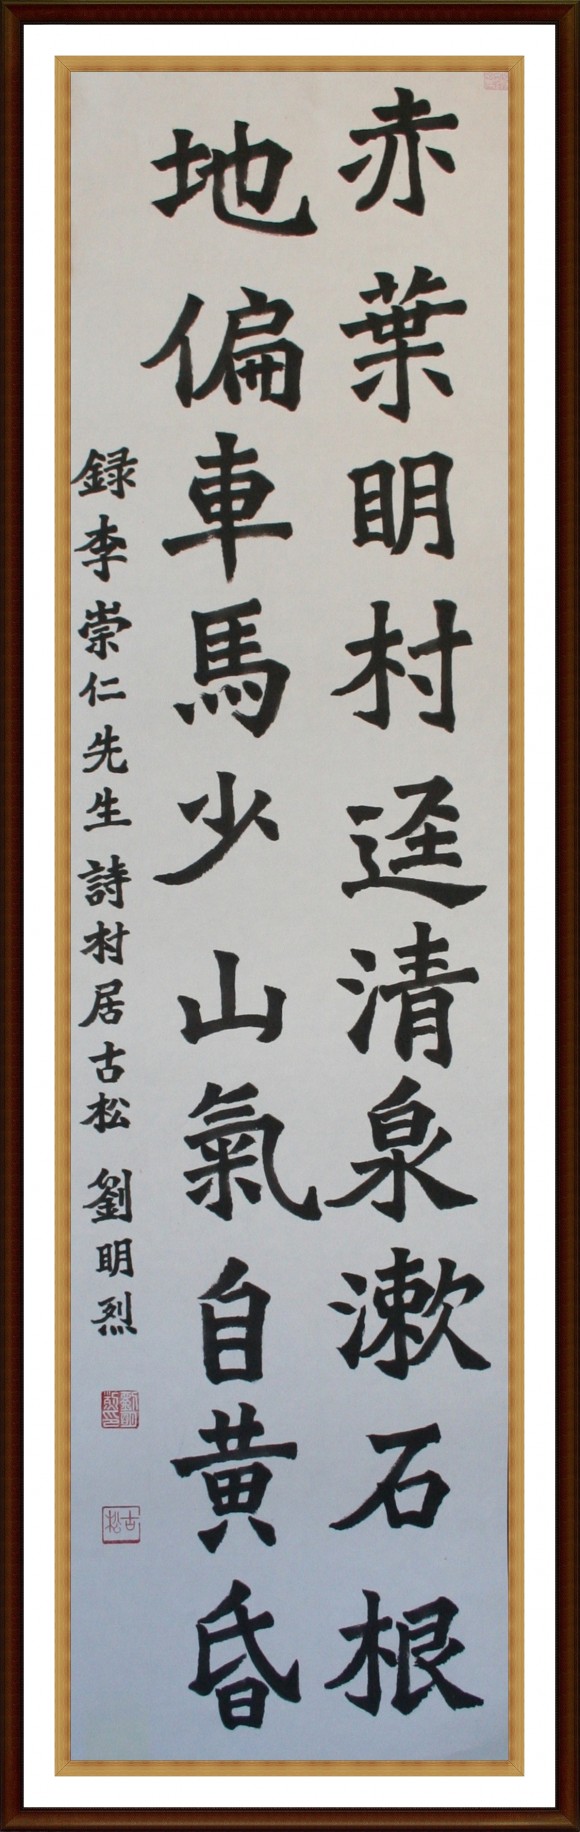 赤葉明村逕清泉漱石根
地偏車馬少山氣自黃昏
録李崇仁先生詩村居古松 劉明烈
古松